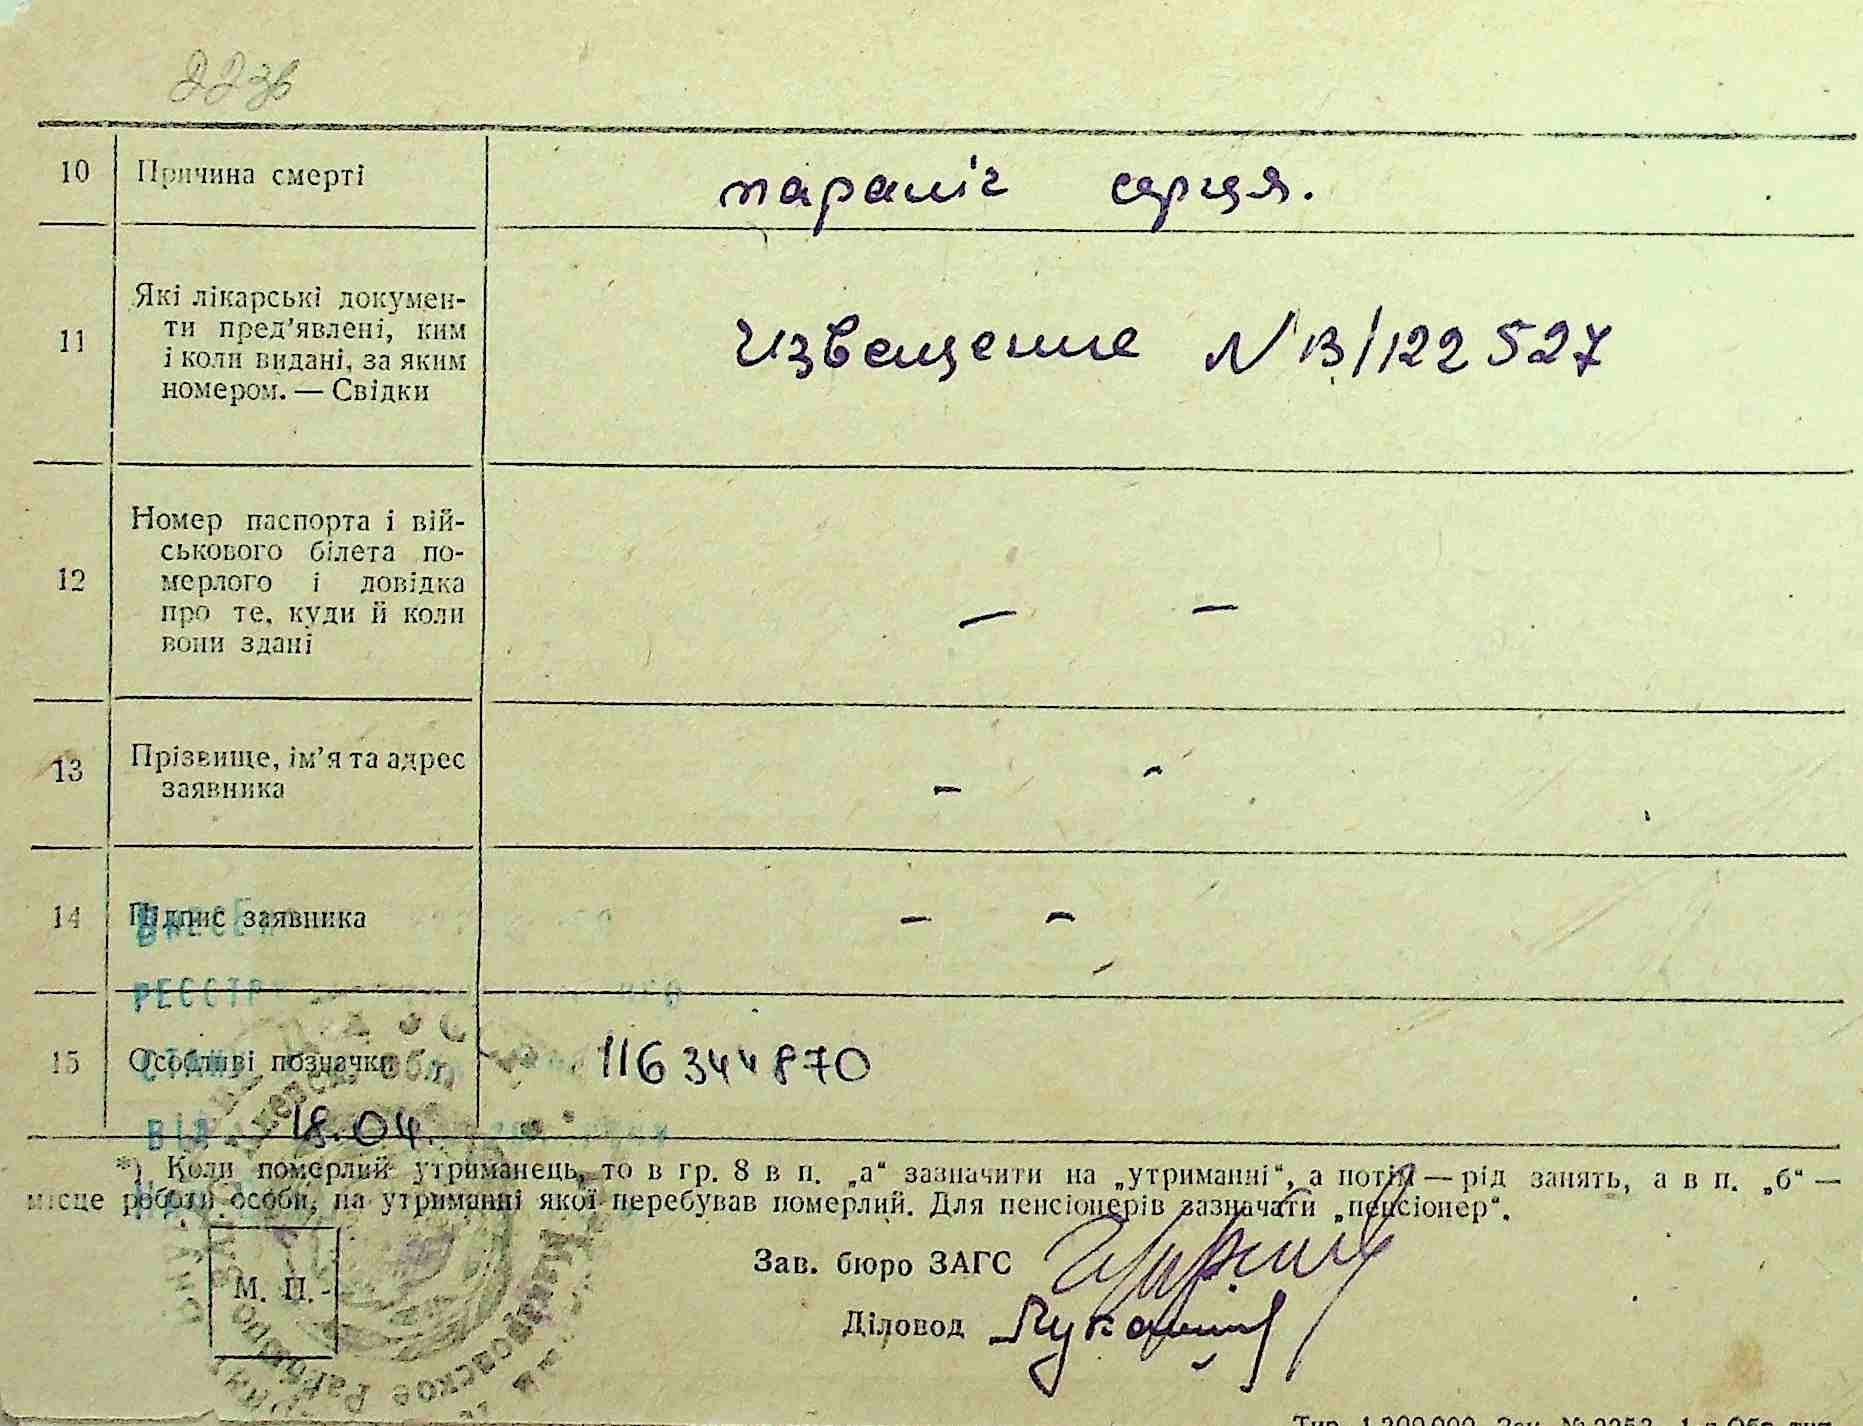 223в
10 Причина смерті параліч серця.
11 Які лікарські докумен-
ти пред'явлені, ким
і коли видані, за яким
номером. — Свідки
Извещение N В/122527
Номер паспорта і вій-
ськового білета по-
12 мерлого і довідка
про те, куди й коли
вони здані
— —
13 Прізвище, ім'я та адрес
заявника
- -
14 Підпис заявника - -
РЕЄСТР
15 Особливі позначки 116344870
ВІД 18.04.
*) Коли померлий утриманець, то в гр. 8 в п. „а“ зазначити на „утриманні“, а потім — рід занять, а в п. „б“ —
місце роботи особи, на утриманні якої перебував померлий. Для пенсіонерів зазначати „пенсіонер“.
Зав. бюро ЗАГС
М. П.
Діловод